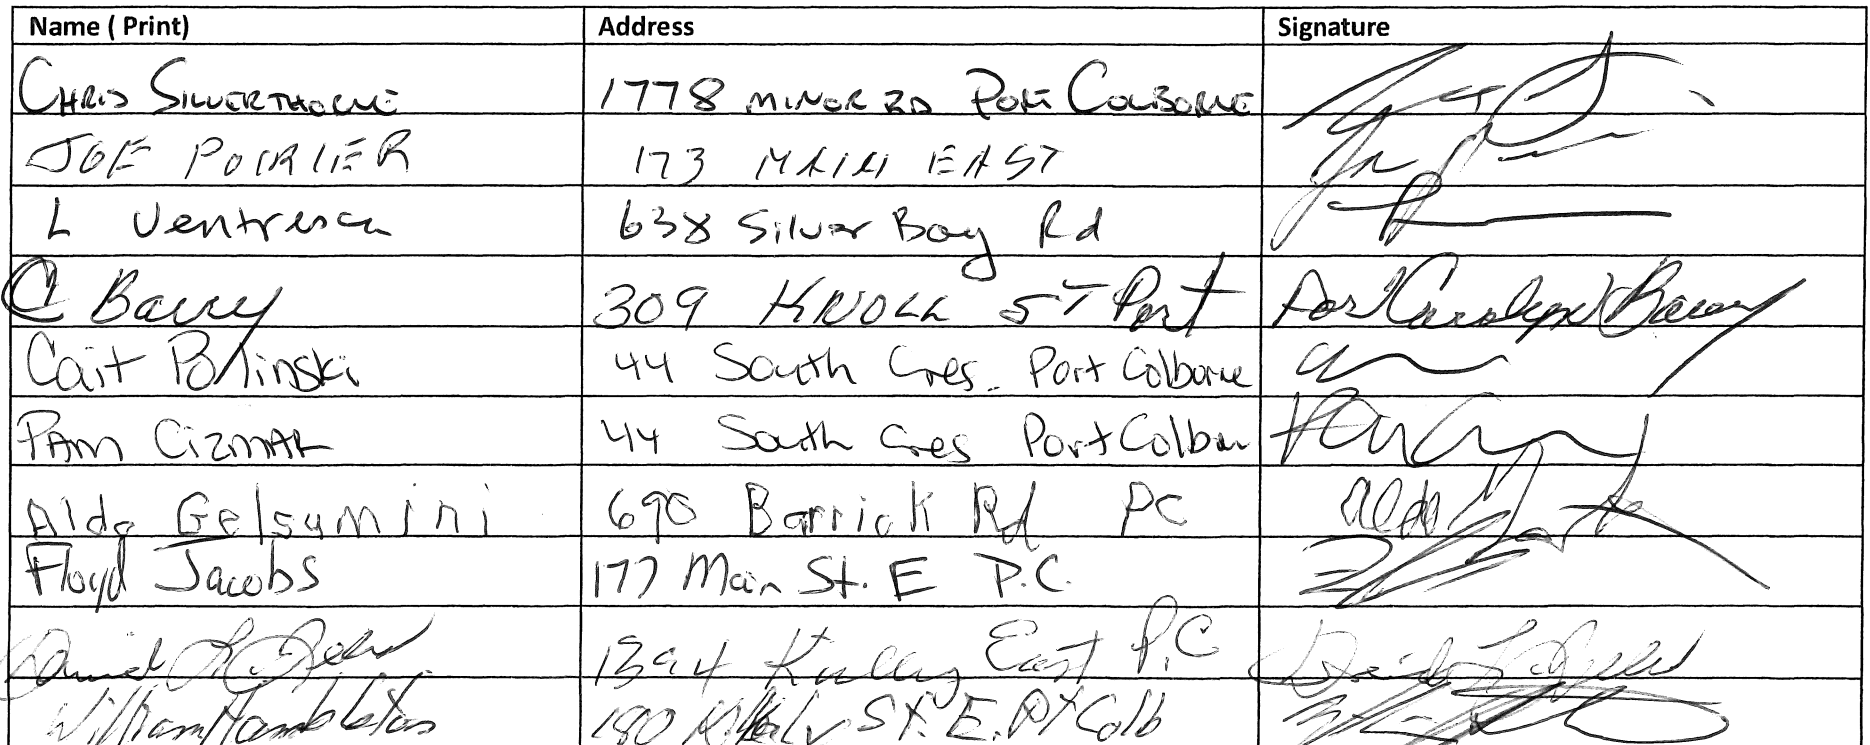 Name ( Print) Address Signature
CHRIS SILVERTHORNE 1778 MINOR RD PORT COLBORNE
JOE POIRIER 173 MAIN EAST
L Ventresca 638 Silver Bay Rd
C Barry 309 KNOLL ST Port for Carolyn Barry
Cait Polinski 44 South Cres. Port Colborne
PAM CIZMAR 44 South Cres Port Colbor
Aldo Gelsomini 690 Barrick Rd PC Aldo
Floyd Jacobs 177 Main St. E P.C.
David L 1394 East P.C David L
William Hambleton 180 St. E. Pt Colb